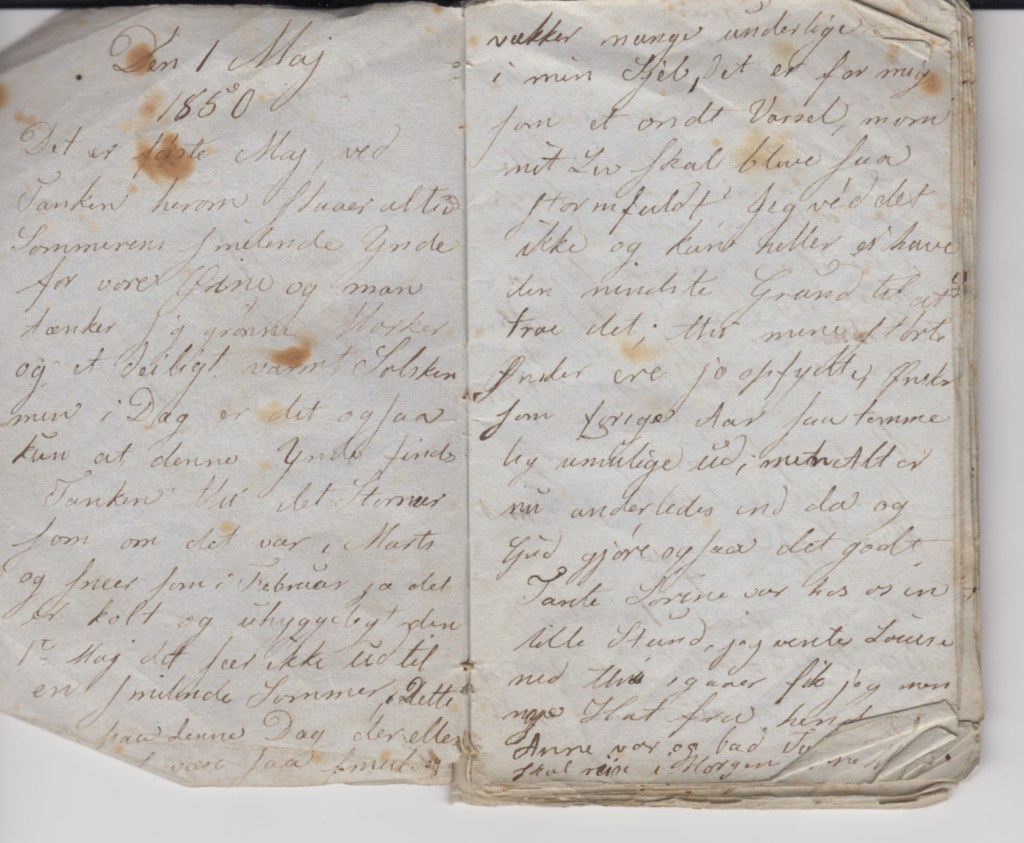 Den 1 Maj
1850
Det er første Maj, ved
Tanken herom staaer altid
Sommerens smilende Ynde
for vore Øine og man
tænker sig grønne Marker
og et deiligt varmt Solskin
men i Dag er det ogsaa
kun at denne Ynde finds
Tanken thi det Stormer
som om det var i Marts
og sneer som i Februar ja det
er kolt og uhyggeligt den
1te Maj det seer ikke ud til
en smilende Sommer, Dette
paa denne Dag der eller
være saa
vækker mange underlige
i min Sjel, det er for mig
som et ondt Varsel, mon
mit Liv skal blive saa
stormfuldt Jeg véd det
ikke og kan heller ei have
den mindste Grund til at
troe det; thi mine største
Ønsker ere jo opfyldte, Ønsker
som forige Aar saae temme
lig umulige ud; men Alt er
nu anderledes end da og
Gud gjøre ogsaa det godt
Tante Sorine var hos os en
lille Stund, jeg venter Louise
ned thi igaaer fik jeg min
nye Hat fra
Anne var og bad
skal reise i Morgen